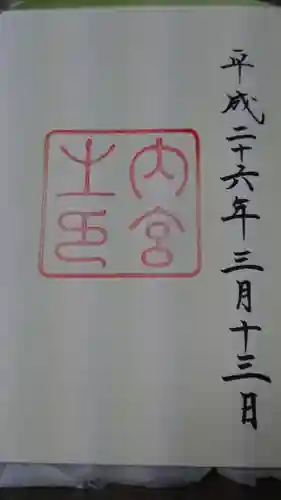 平成二十六年三月十三日
内宮
之印